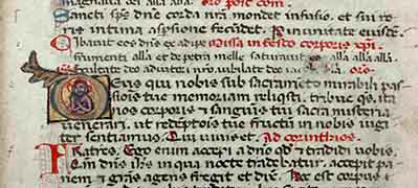 Sancti sps dne corda nra mundet infusio. et sui ro
ris intima aspsione fecudet. P in unitate eiusdē.
Cibavit eos dns ex adipe Missa in festo corporis xpi.
frumenti alla et de petra melle saturavit alla alla alla
Deus qui nobis sub sacramēto mirabili pas
siois tue memoriam reliqsti. tribue qs. ita
nos corporis et sanguis tui sacra misteria
venerari. ut redeptois tue fructū in nobis iugi
ter sentiamus. Qui vivis et. Ad corinthios.
Fratres. Ego enim accepi a dno qd et tradidi vobis.
qm dns ihs in qua nocte tradebatur. accepit pa
nem et gras agens fregit et dix. hoc est corpus